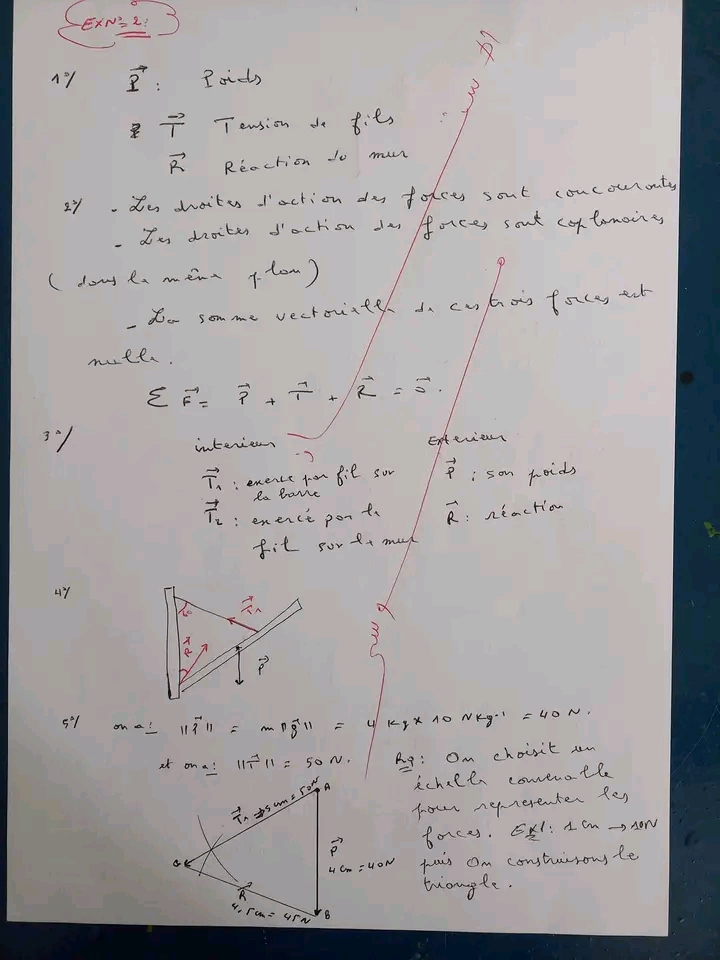 EXN°=2:
1°/ P⃗ : Poids
T⃗ Tension de fils
R⃗ Réaction du mur
2°/ - Les droites d'action des forces sont concourantes
- Les droites d'action des forces sont coplanaires
( dans la même plan )
- La somme vectorielle de ces trois forces est
nulle.
Σ F⃗ = P⃗ + T⃗ + R⃗ = 0⃗.
3°/ interieur Exterieur
T⃗₁ : exercé par fil sur la barre P⃗ : son poids
T⃗₂ : exercé par le fil sur le mur R⃗ : réaction
4°/
T⃗₁
R⃗
P⃗
5°/ on a: ||P⃗|| = m ||g⃗|| = 4 Kg × 10 N Kg⁻¹ = 40 N.
et on a: ||T⃗|| = 50 N.
Rq: On choisit un
échelle convenable
pour representer les
forces. Ex: 1 cm → 10N
puis on construisons le
triangle.
T⃗₁ 5cm = 50N
A
P⃗
4cm = 40N
R⃗
4,5cm = 45N
B